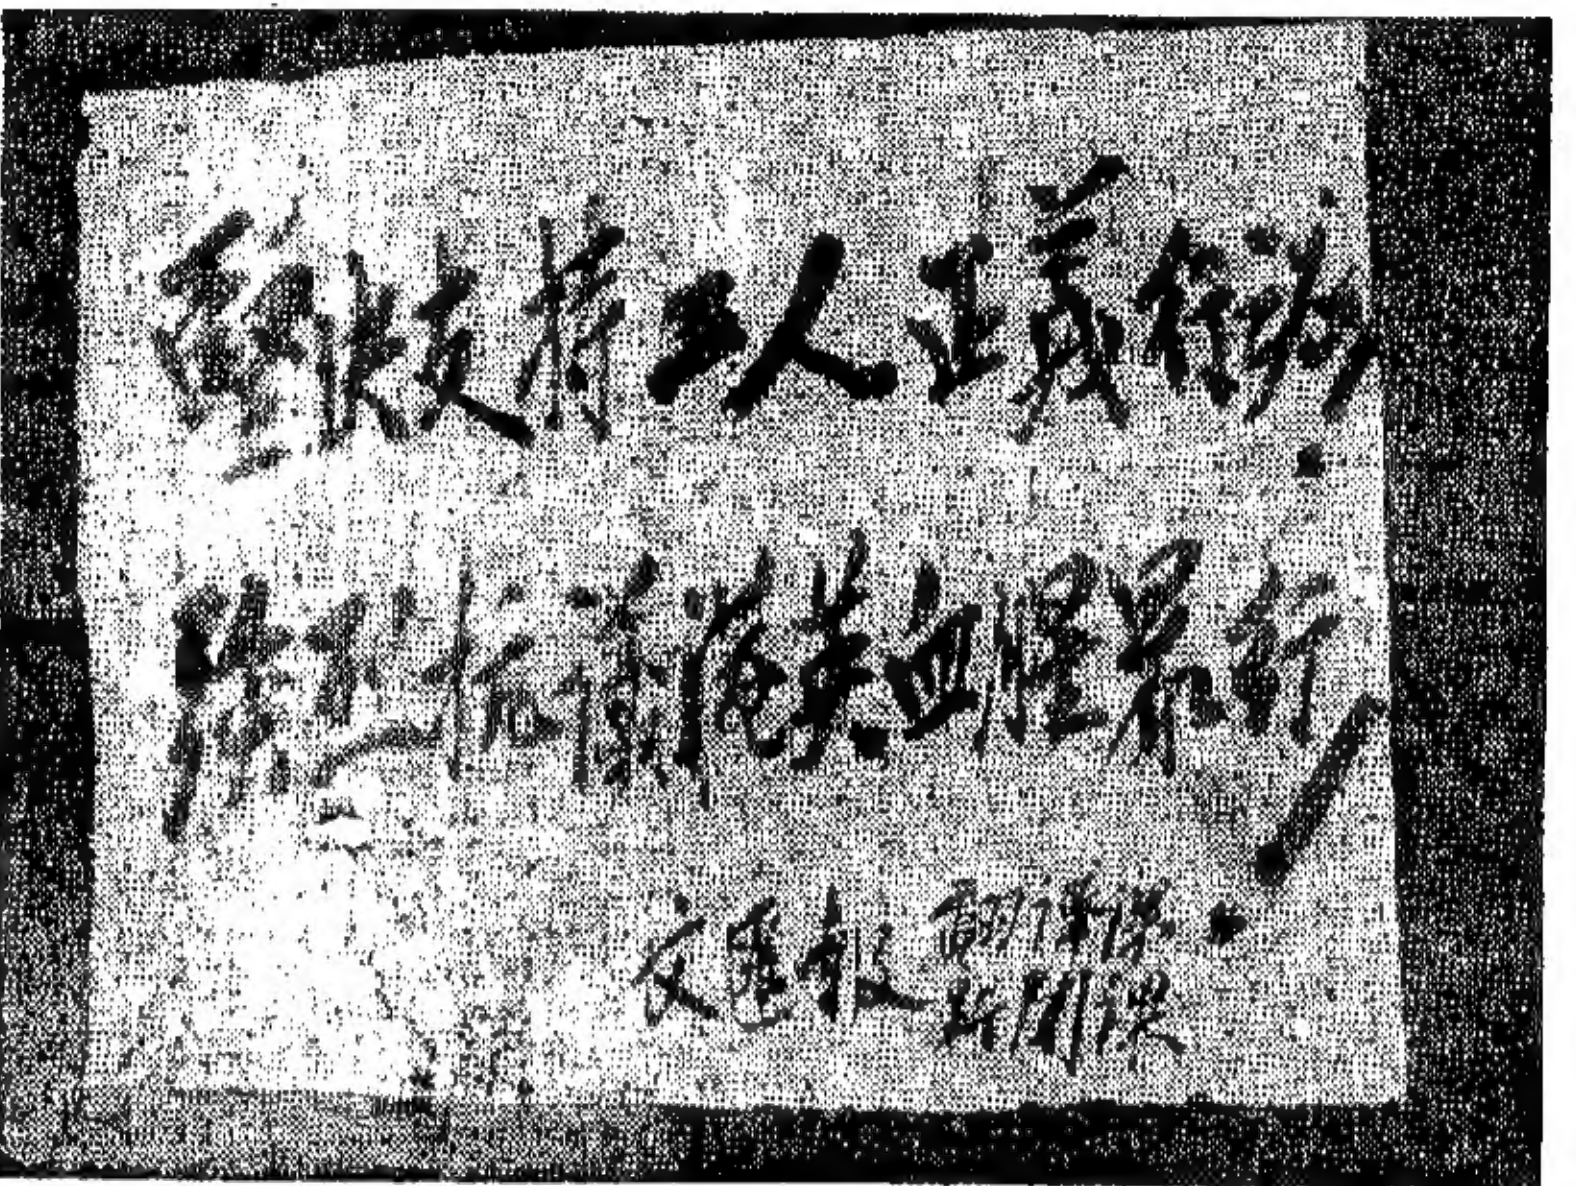 堅決支持工人正義行動！
抗議港英血腥暴行！
文匯報 翻譯課
新聞課